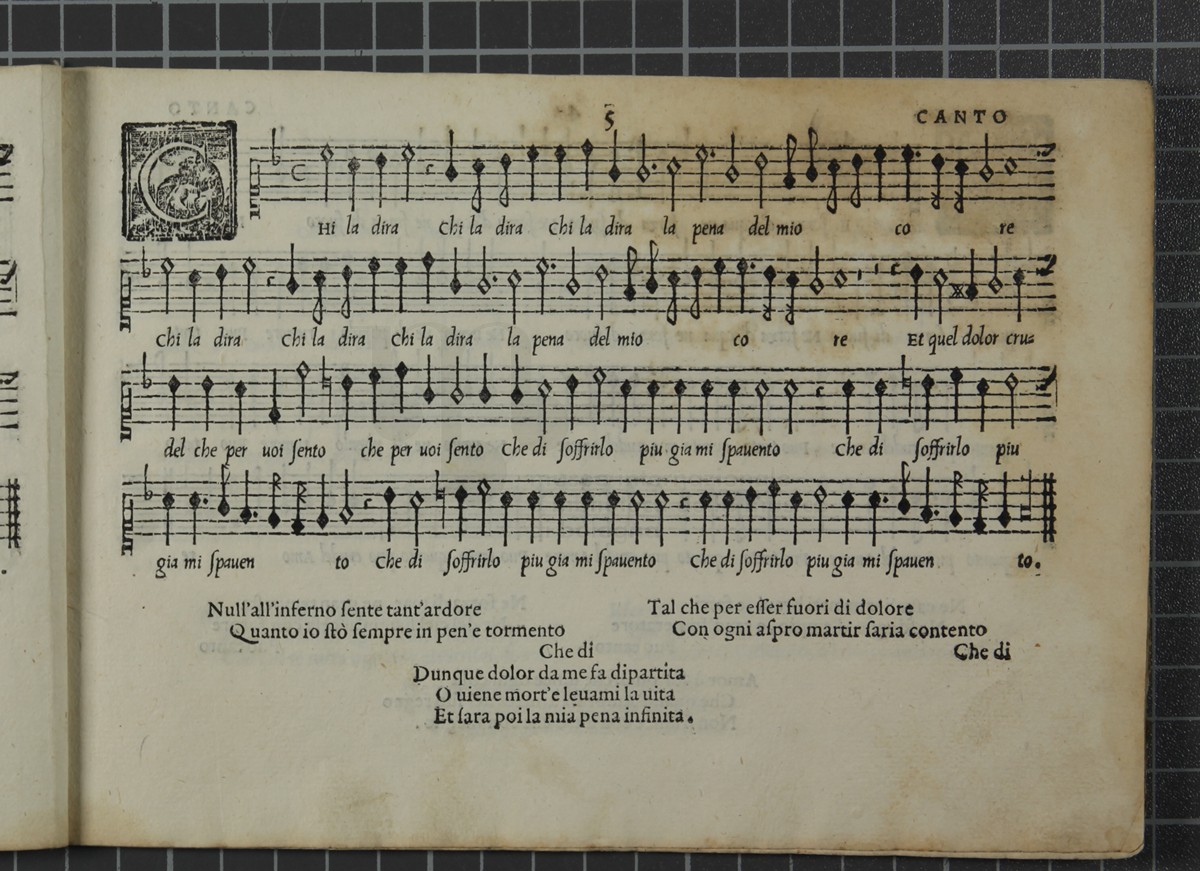 5 CANTO
CHi la dira Chi la dira Chi la dira la pena del mio co re
Chi la dira Chi la dira Chi la dira la pena del mio co re Et quel dolor cru=
del che per uoi ſento che per uoi ſento Che di ſoffrirlo piu gia mi ſpauento Che di ſoffrirlo piu
gia mi ſpauen to Che di ſoffrirlo piu gia mi ſpauento Che di ſoffrirlo piu gia mi ſpauen to.
Null'all'inferno ſente tant'ardore
Quanto io ſtò ſempre in pen'e tormento
Che di
Tal che per eſſer fuori di dolore
Con ogni aſpro martir ſaria contento
Che di
Dunque dolor da me fa dipartita
O uiene mort'e leuami la uita
Et ſara poi la mia pena infinita.